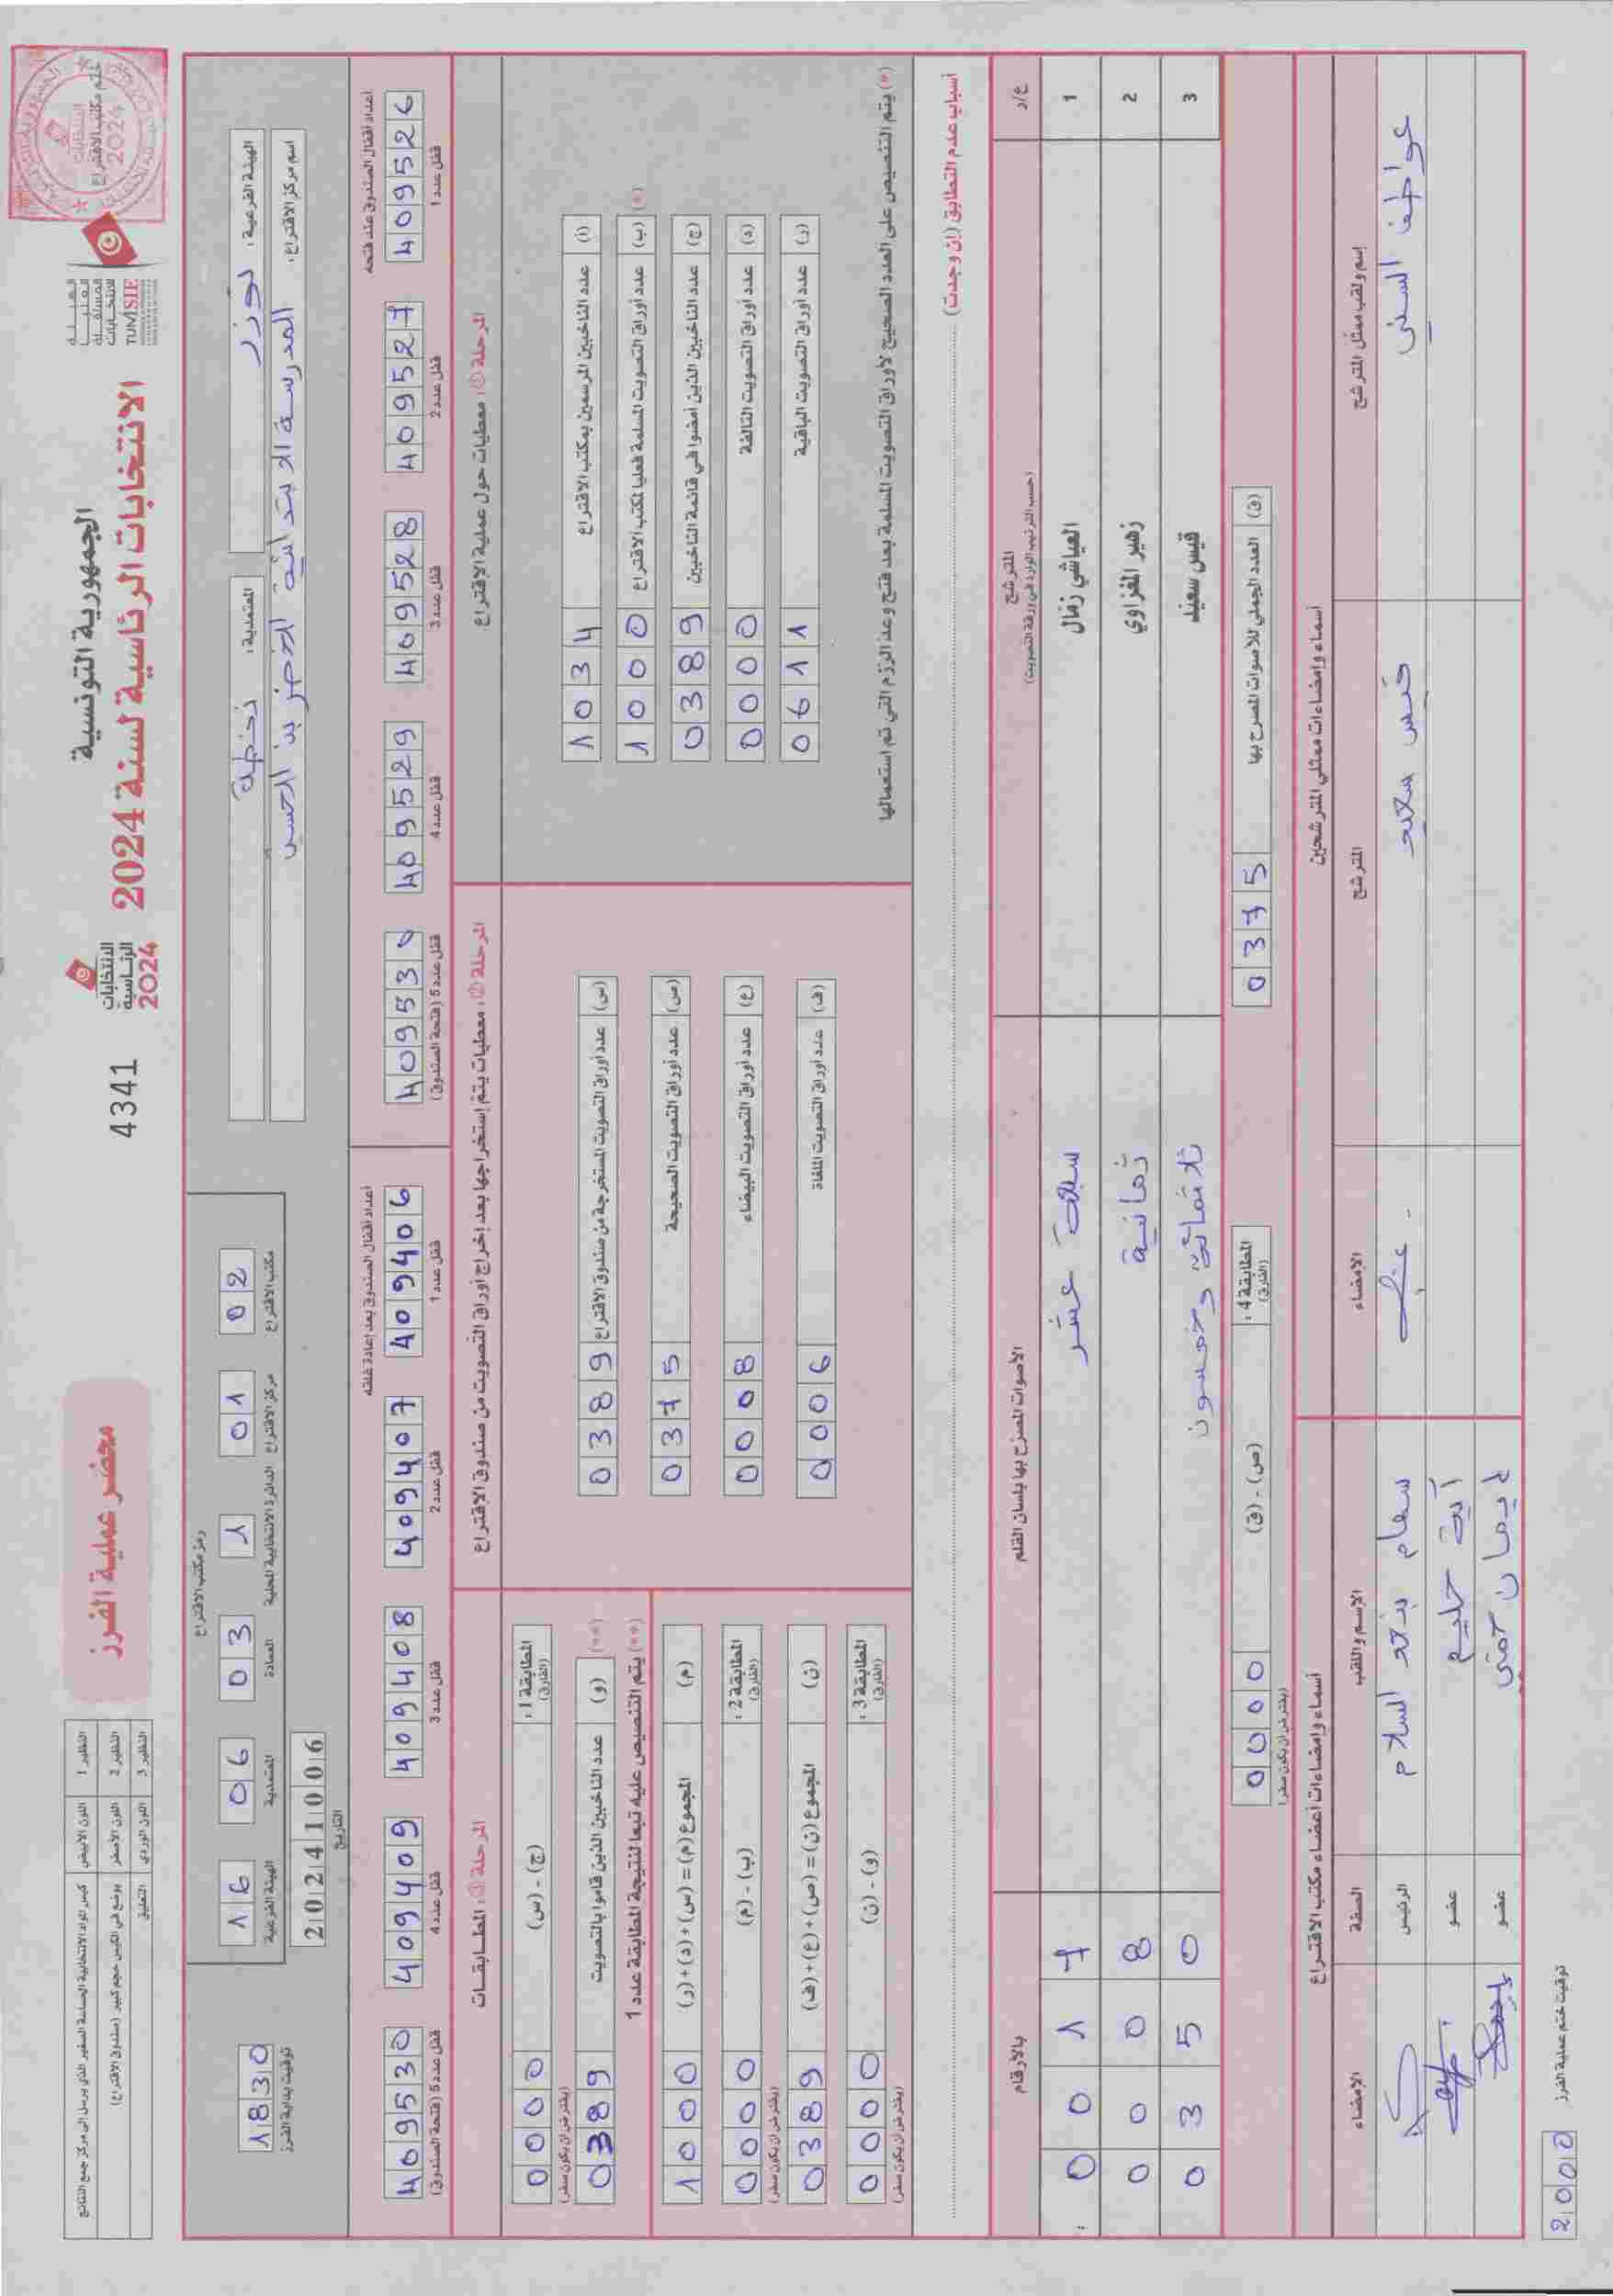 الجمهورية التونسية
الانتخابات الرئاسية لسنة 2024
الهيئة
العليا
المستقلة
للانتخابات
TUNISIE
ختم مكتب الاقتراع
الانتخابات
الرئاسية
2024
4341
محضر عملية الفرز
النظير 1 اللون الأبيض كيس المواد الانتخابية الحساسة الصغير الذي يرسل إلى مركز جمع النتائج
النظير 2 اللون الأصفر يوضع في الكيس حجم كبير (صندوق الاقتراع)
النظير 3 اللون الوردي التعليق
الهيئة الفرعية : توزر
المعتمدية : نفطة
اسم مركز الاقتراع : المدرسة الابتدائية الخضر بن الحسين
رمز مكتب الاقتراع
02 مكتب الاقتراع
01 مركز الاقتراع
1 الدائرة الانتخابية المحلية
03 العمادة
06 المعتمدية
16 الهيئة الفرعية
20241006
التاريخ
1830
توقيت بداية الفرز
أعداد أقفال الصندوق عند فتحه
409526 قفل عدد 1
409527 قفل عدد 2
409528 قفل عدد 3
409529 قفل عدد 4
409530 قفل عدد 5 (فتحة الصندوق)
أعداد أقفال الصندوق بعد إعادة غلقه
409406 قفل عدد 1
409407 قفل عدد 2
409408 قفل عدد 3
409409 قفل عدد 4
409530 قفل عدد 5 (فتحة الصندوق)
المرحلة ①: معطيات حول عملية الاقتراع
(أ) عدد الناخبين المرسمين بمكتب الاقتراع 1034
(*) (ب) عدد أوراق التصويت المسلمة فعليا لمكتب الاقتراع 1000
(ج) عدد الناخبين الذين أمضوا في قائمة الناخبين 0389
(د) عدد أوراق التصويت التالفة 0000
(ر) عدد أوراق التصويت الباقية 0611
(*) يتم التنصيص على العدد الصحيح لأوراق التصويت المسلمة بعد فتح وعد الرزم التي تم استعمالها
المرحلة ②: معطيات يتم إستخراجها بعد إخراج أوراق التصويت من صندوق الاقتراع
(س) عدد أوراق التصويت المستخرجة من صندوق الاقتراع 0389
(ص) عدد أوراق التصويت الصحيحة 0375
(ع) عدد أوراق التصويت البيضاء 0008
(ف) عدد أوراق التصويت الملغاة 0006
المرحلة ③: المطابقات
المطابقة 1 : (الفارق) (ج) - (س) 0000
(يفترض أن يكون صفر)
(**) (و) عدد الناخبين الذين قاموا بالتصويت 0389
(**) يتم التنصيص عليه تبعا لنتيجة المطابقة عدد 1
(م) المجموع (م) = (س) + (د) + (ر) 1000
المطابقة 2 : (الفارق) (ب) - (م) 0000
(يفترض أن يكون صفر)
(ن) المجموع (ن) = (ص) + (ع) + (ف) 0389
المطابقة 3 : (الفارق) (و) - (ن) 0000
(يفترض أن يكون صفر)
أسباب عدم التطابق (إن وجدت)
ع/د المترشح (حسب الترتيب الوارد في ورقة التصويت) الأصوات المصرح بها بلسان القلم بالأرقام
1 العياشي زمّال سبعة عشر 0017
2 زهير المغزاوي ثمانية 0008
3 قيس سعيّد ثلاثمائة وخمسون 0350
(ق) العدد الجملي للأصوات المصرح بها 0375
المطابقة 4 : (الفارق) (ص) - (ق) 0000
(يفترض أن يكون صفر)
أسماء وإمضاءات ممثلي المترشحين
إسم ولقب ممثل المترشح المترشح الإمضاء
عواطف السني قيس سعيد
أسماء وإمضاءات أعضاء مكتب الاقتراع
الإسم واللقب الصفة الإمضاء
سهام بنعبد السلام الرئيس
آية حليم عضو
إيمان حمتي عضو
توقيت ختم عملية الفرز 2000